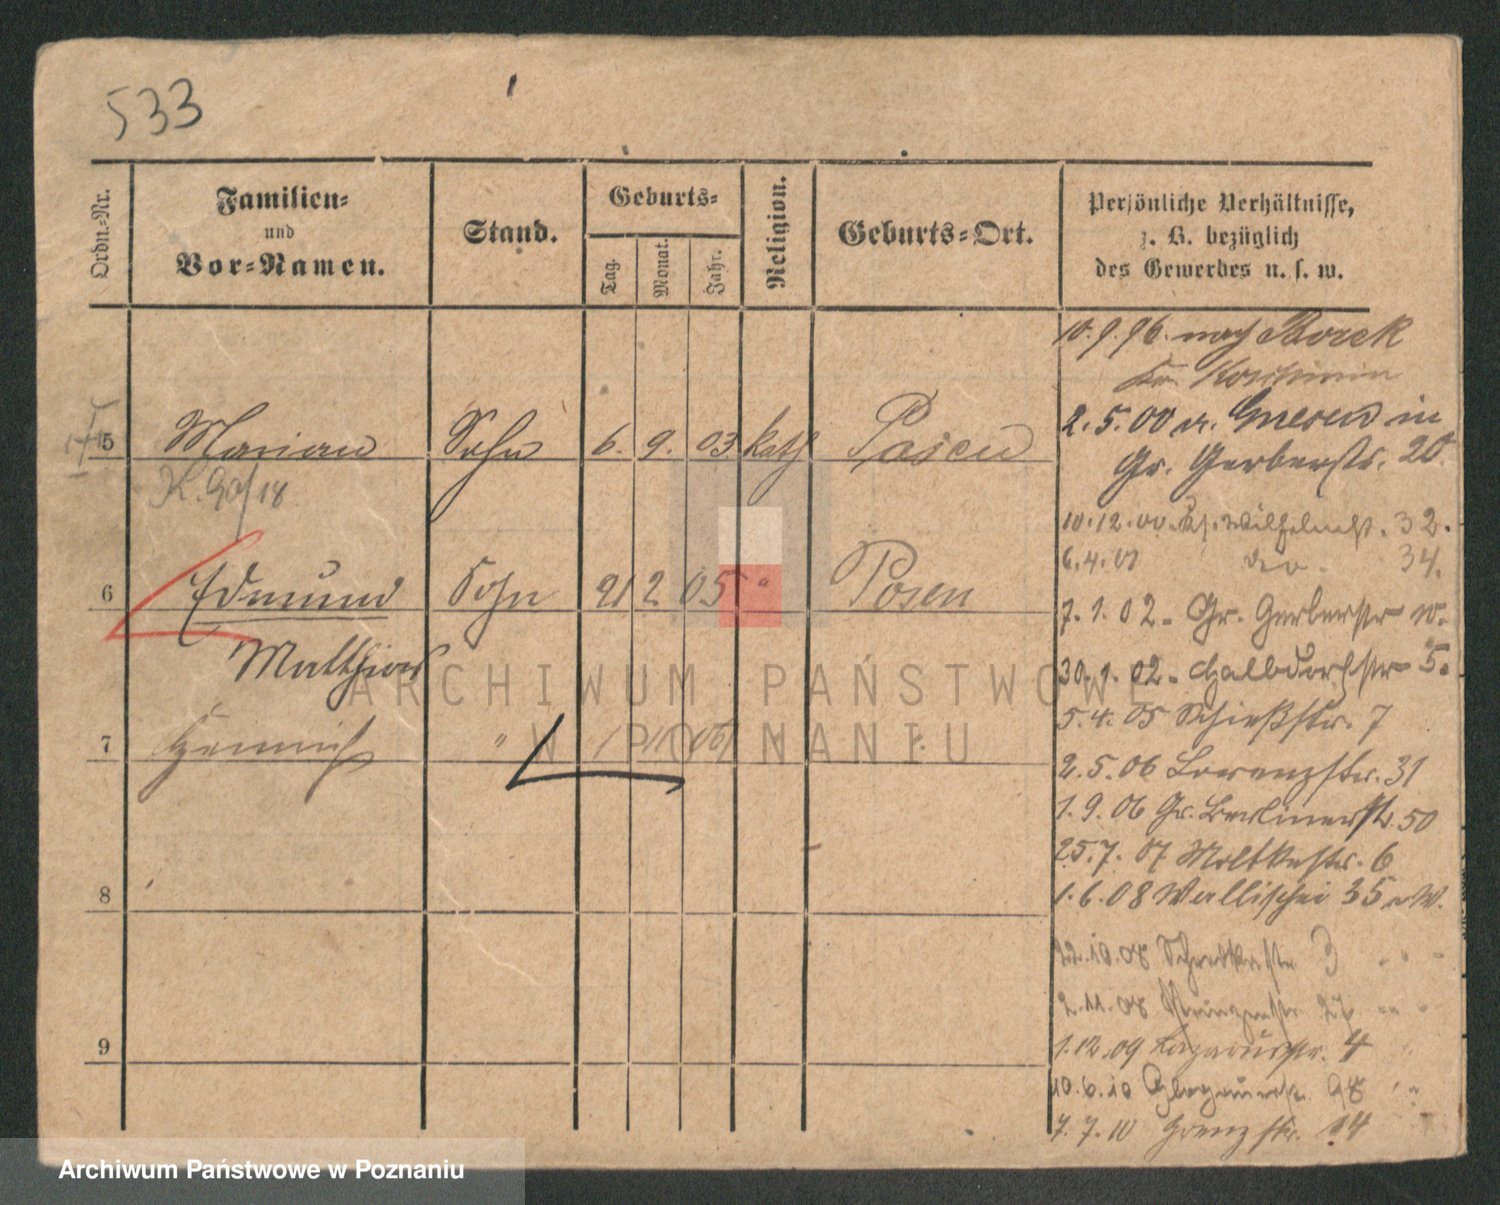 533
Ordn.-Nr.
Familien-
und
Vor-Namen.
Stand.
Geburts-
Tag.
Monat.
Jahr.
Religion.
Geburts-Ort.
Persönliche Verhältnisse,
z. B. bezüglich
des Gewerbes u. s. w.
10.9.96. nach Borek
Kr. Koschmin
5 Marian Sohn 6. 9. 03 kath Posen
2.5.00 v. Gnesen in
Gr. Gerberstr. 20.
10.12.00. Wilhelmstr. 32.
6.4.01 do. 34.
6 Edmund Sohn 21 2 05 " Posen
Matthias
7.1.02. Gr. Gerberstr
30.1.02. Halbdorfstr 5.
5.4.05 Schießstr. 7
7 Heinrich "
2.5.06 Lorenzstr. 31
1.9.06 Gr. Berlinerstr. 50
25.7.07 Moltkestr. 6
8
1.6.08 Wallischei 35
22.10.08 3
2.11.08 27
9
1.12.09 Lazarusstr. 4
10.6.10 Glogauerstr. 98
7.7.10 Grenzstr. 14
ARCHIWUM PAŃSTWOWE
W POZNANIU
Archiwum Państwowe w Poznaniu